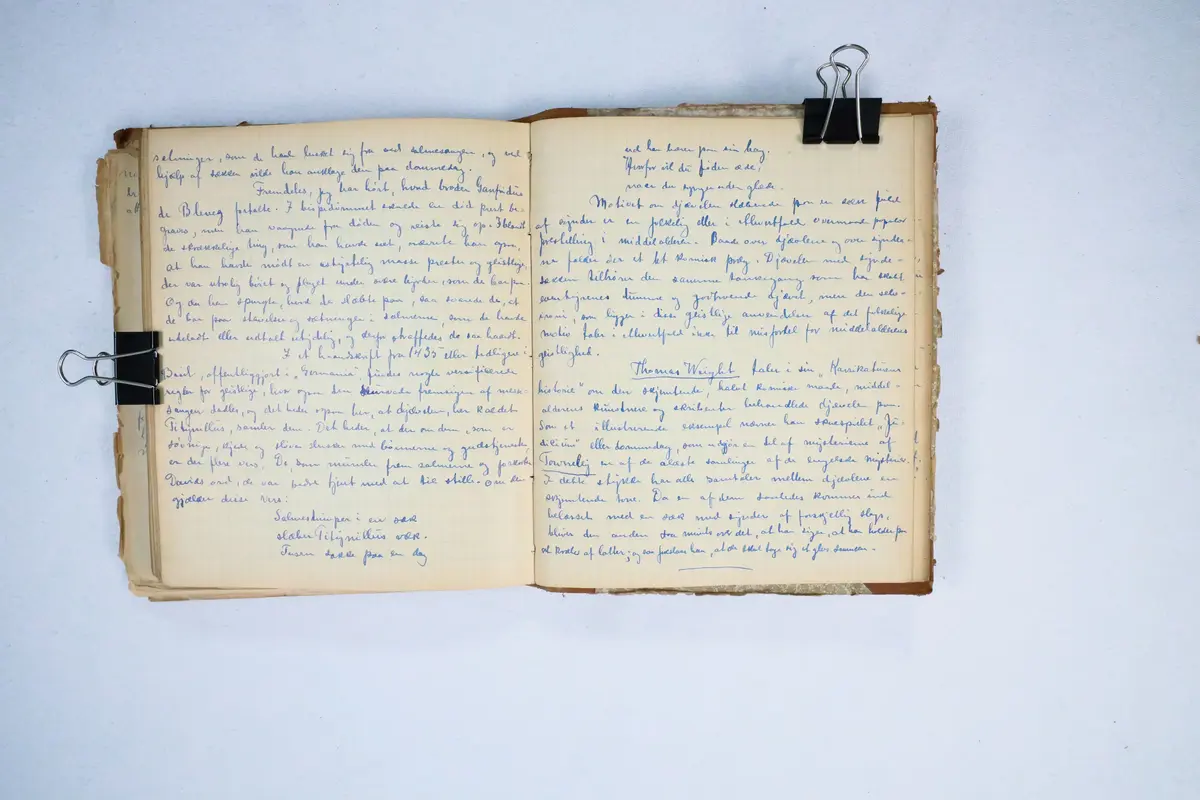 sætninger, som de havde luret sig fra ved salmesangen, og ved
hjælp af sækken vilde han anklage dem paa dommedag.
Fremdeles, jeg har hørt, hvad broder Ganfridus
de Bleneq fortalte. I bispedømmet skulde en død præst be-
graves, men han vaagnede fra døden og reiste sig op. Iblandt
de skrækkelige ting, som han havde set, nævnte han ogsaa,
at han havde mødt en ustyrtelig masse prester og geistlige,
der var utrolig bøiet og flyet under svære byrder, som de bar paa.
Og da han spurgte, hvad de slæbte paa, saa svarede de, at
de bar paa stavelser og sætninger i salmerne, som de havde
udeladt eller udtalt utydelig, og derfor straffedes de saa haardt.
I et haandskrift fra 1435 eller tidligere i
Basel, offentliggjort i „Germania" findes nogle versificerede
regler for geistlige, hvor ogsaa den skurrede fremsigen af messe-
sangen dadles, og det heder ogsaa her, at djævelen, her kaldet
Titinillus, samler dem. Det heder, at der om dem, som er
søvnige, og sløve
er der flere vers. De, som mumler frem salmerne og forkorter
Davids ord, de var bedst tjent med at tie stille. Om dem
gjælder disse vers:
Salmestumper i en sæk
slæber Titinillus væk.
Tusen sække paa en dag
ved han bærer paa sin bag.
Hvorfor vil du føden æde,
naar du synger uden glæde.
Motivet om djævelen slæbende paa en sæk fuld
af synder er en folkelig eller i allmuefald overmaade populær
forestilling i middelalderen. Baade over djævlene og over synder-
ne falder der et let komisk præg. Djævelen med synde-
sækken tilhører den samme tankegang som har skabt
eventyrenes dumme og godtroende djævel, men den selv-
ironi, som ligger i disse geistlige anvendelser af det folkelige
motiv taler i allmuefald ikke til misfordel for middelalderens
geistlighed.
Thomas Wright taler i sin „Karrikaturens
historie" om den skjemtende, halvt komiske maade, middel-
alderens kunstnere og skribenter behandlede djævelen paa.
Som et illustrerende exempel nævner han skuespillet „Ju-
dicium" eller dommedag, som udgjør en del af mysterierne af
Towneley en af de ældste samlinger af de engelske mysterier.
I dette stykke har alle samtaler mellem djævlene en
skjemtende tone. Da en af dem saaledes kommer ind
belæsset med en sæk med synder af forskjellig slags,
bliver den anden saa munter over det, at han siger, at han holder paa
at kvæles af latter; og saa foreslaar han, at de skal tage sig et glas sammen.